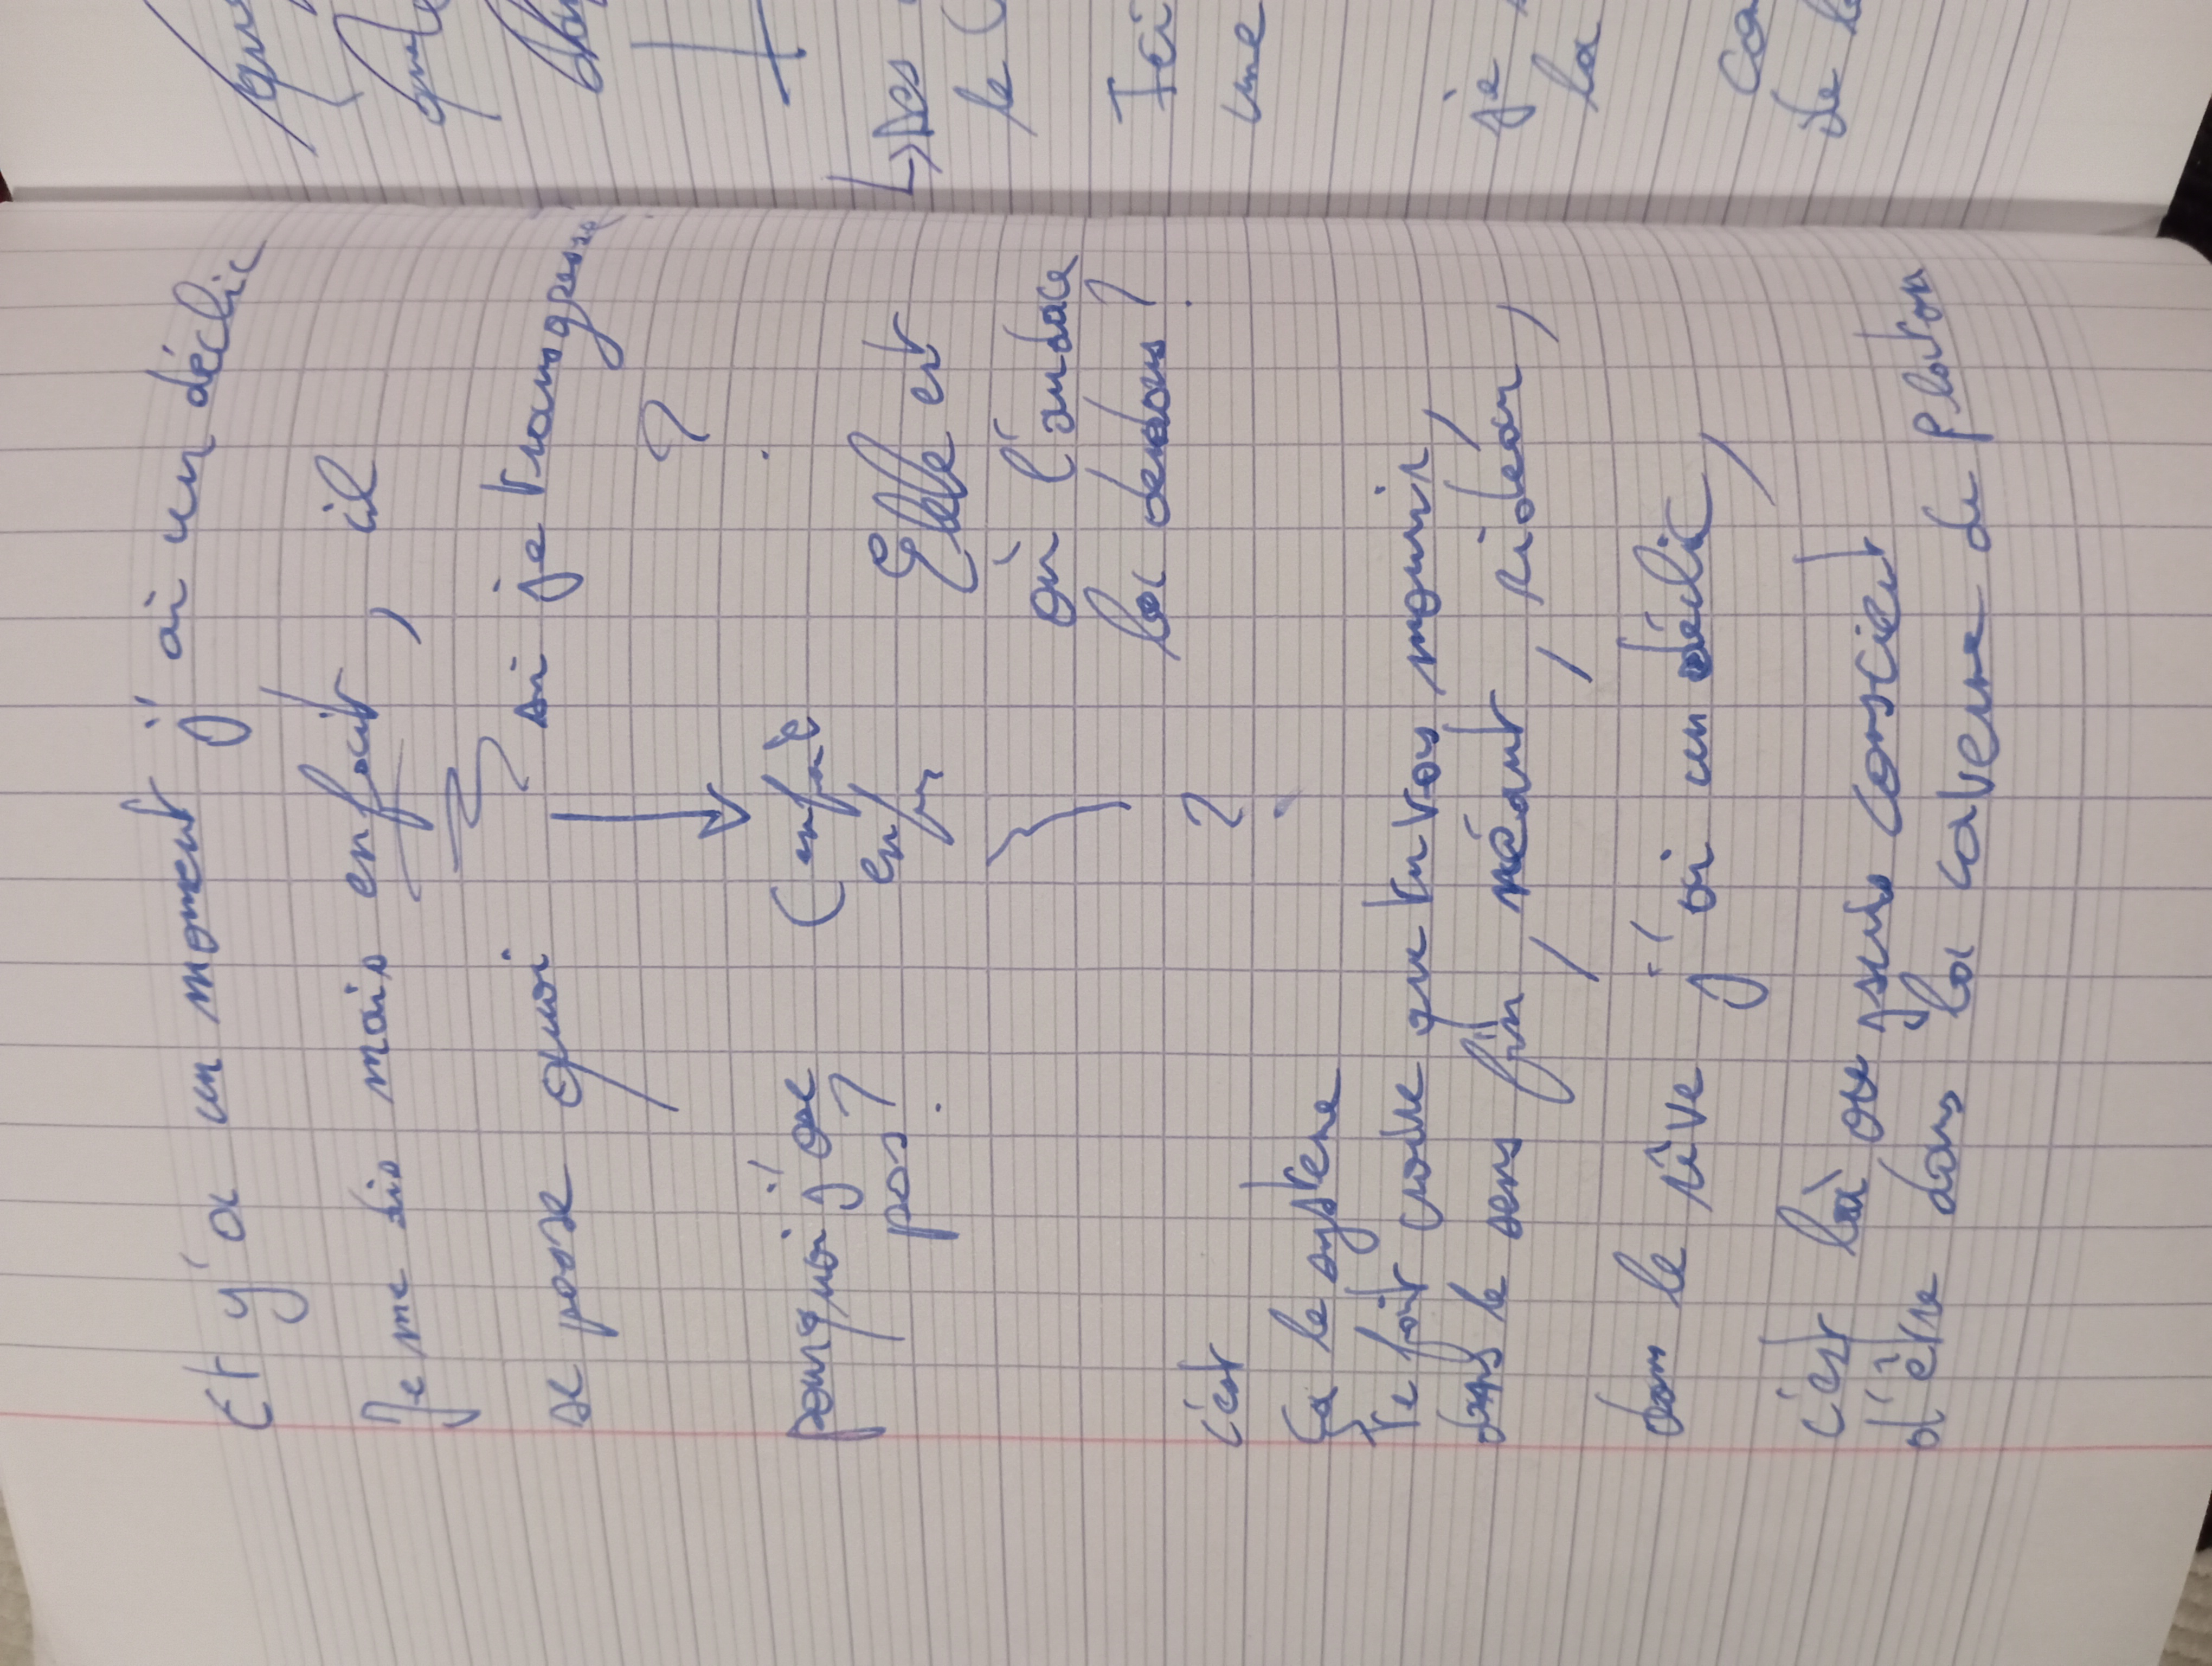 Et y'a un moment j'ai un déclic
Je me dis mais enfait, il
se passe quoi si je transgresse
?
pourquoi j'ose
pas?
(enfait
enfin
Elle est
où l'audace
là dedans?
?
c'est
Ça le système
te fait croire que tu vas mourir,
dans le sens fin, néant, rideau,
dans le rêve j'ai un déclic,
c'est là ou jsuis conscient
d'être dans la caverne de platon
que
↳ Des
le
Ici
une
je
la
de